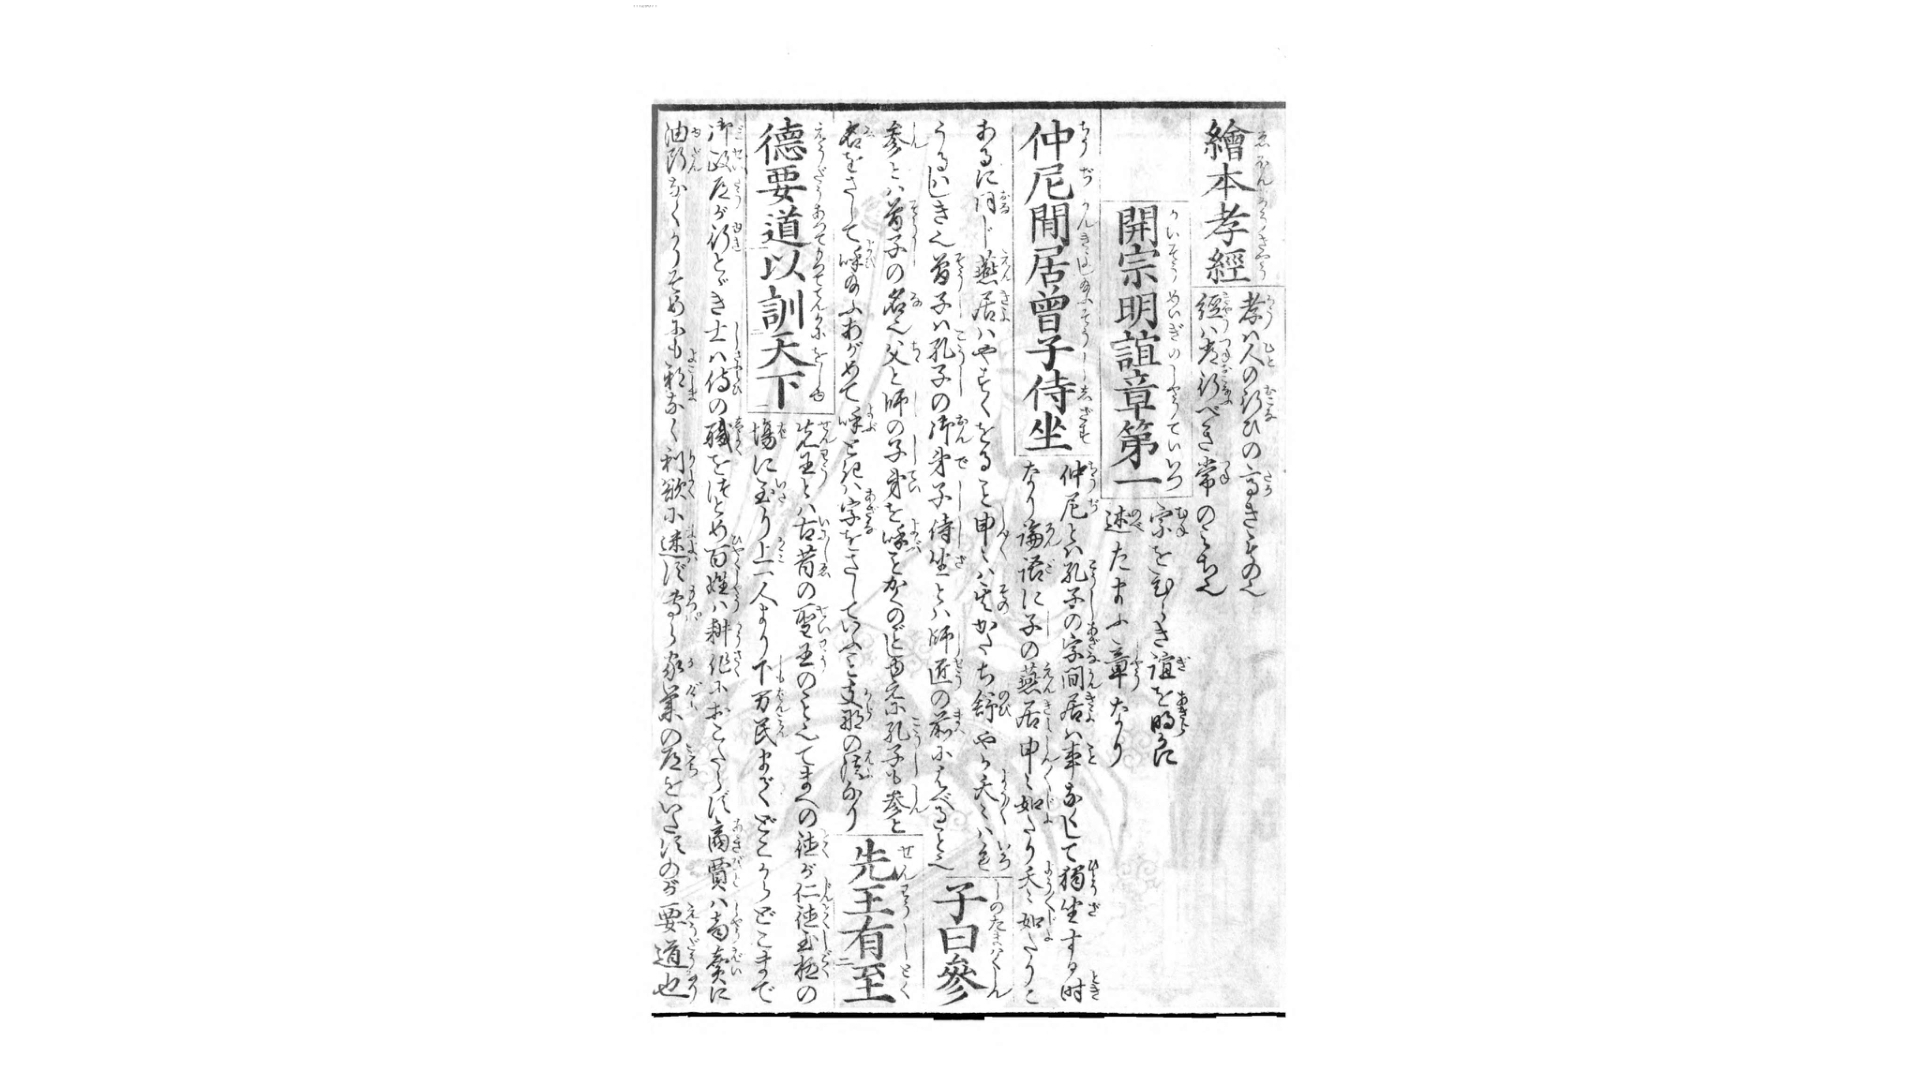 繪本孝經
孝ハ人の行ひの高きもの也
經ハ考行べき常のみち也
開宗明誼章第一
宗をひらき誼を明らかに
述たまふ章なり
仲尼間居曾子侍坐
仲尼とハ孔子の字間居ハ事なくして獨坐する时
なり論語に子の燕居申〻如たり夭〻如たりと
あるに同じ燕居ハやすくをること申〻ハ其かたち舒やか夭〻ハ色
うるハしき也曾子ハ孔子の御弟子侍坐とハ師匠の前に
子曰參
參とハ曾子の名也父と師の子弟を呼ことかくのごとし孔子も參と
名をさして呼給ふあがめて呼ときハ字をさしていふこと支那の法なり
先王有至
德要道以訓天下
先王とハ古昔の聖王のこと也の徳が仁徳至極の
場に至り上一人より下万民までどこからどこまで
御政道が行とゞき士ハ侍の職をつとめ百姓ハ耕作におこたらず商賈ハ商賣に
油断なくかりそめにも邪なく利欲に迷ず家業の道をいたすのが要道也